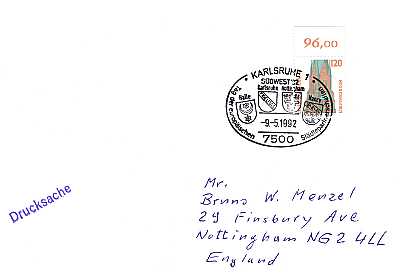 96,00
120
KARLSRUHE 1
SÜDWEST '92
Karlsruhe Nottingham
Halle
Nancy
Tag der europäischen
Städtepartnerschaften
-9.-5.1992
7500
Drucksache
Mr.
Bruno W. Menzel
29 Finsbury Ave
Nottingham NG2 4LL
England